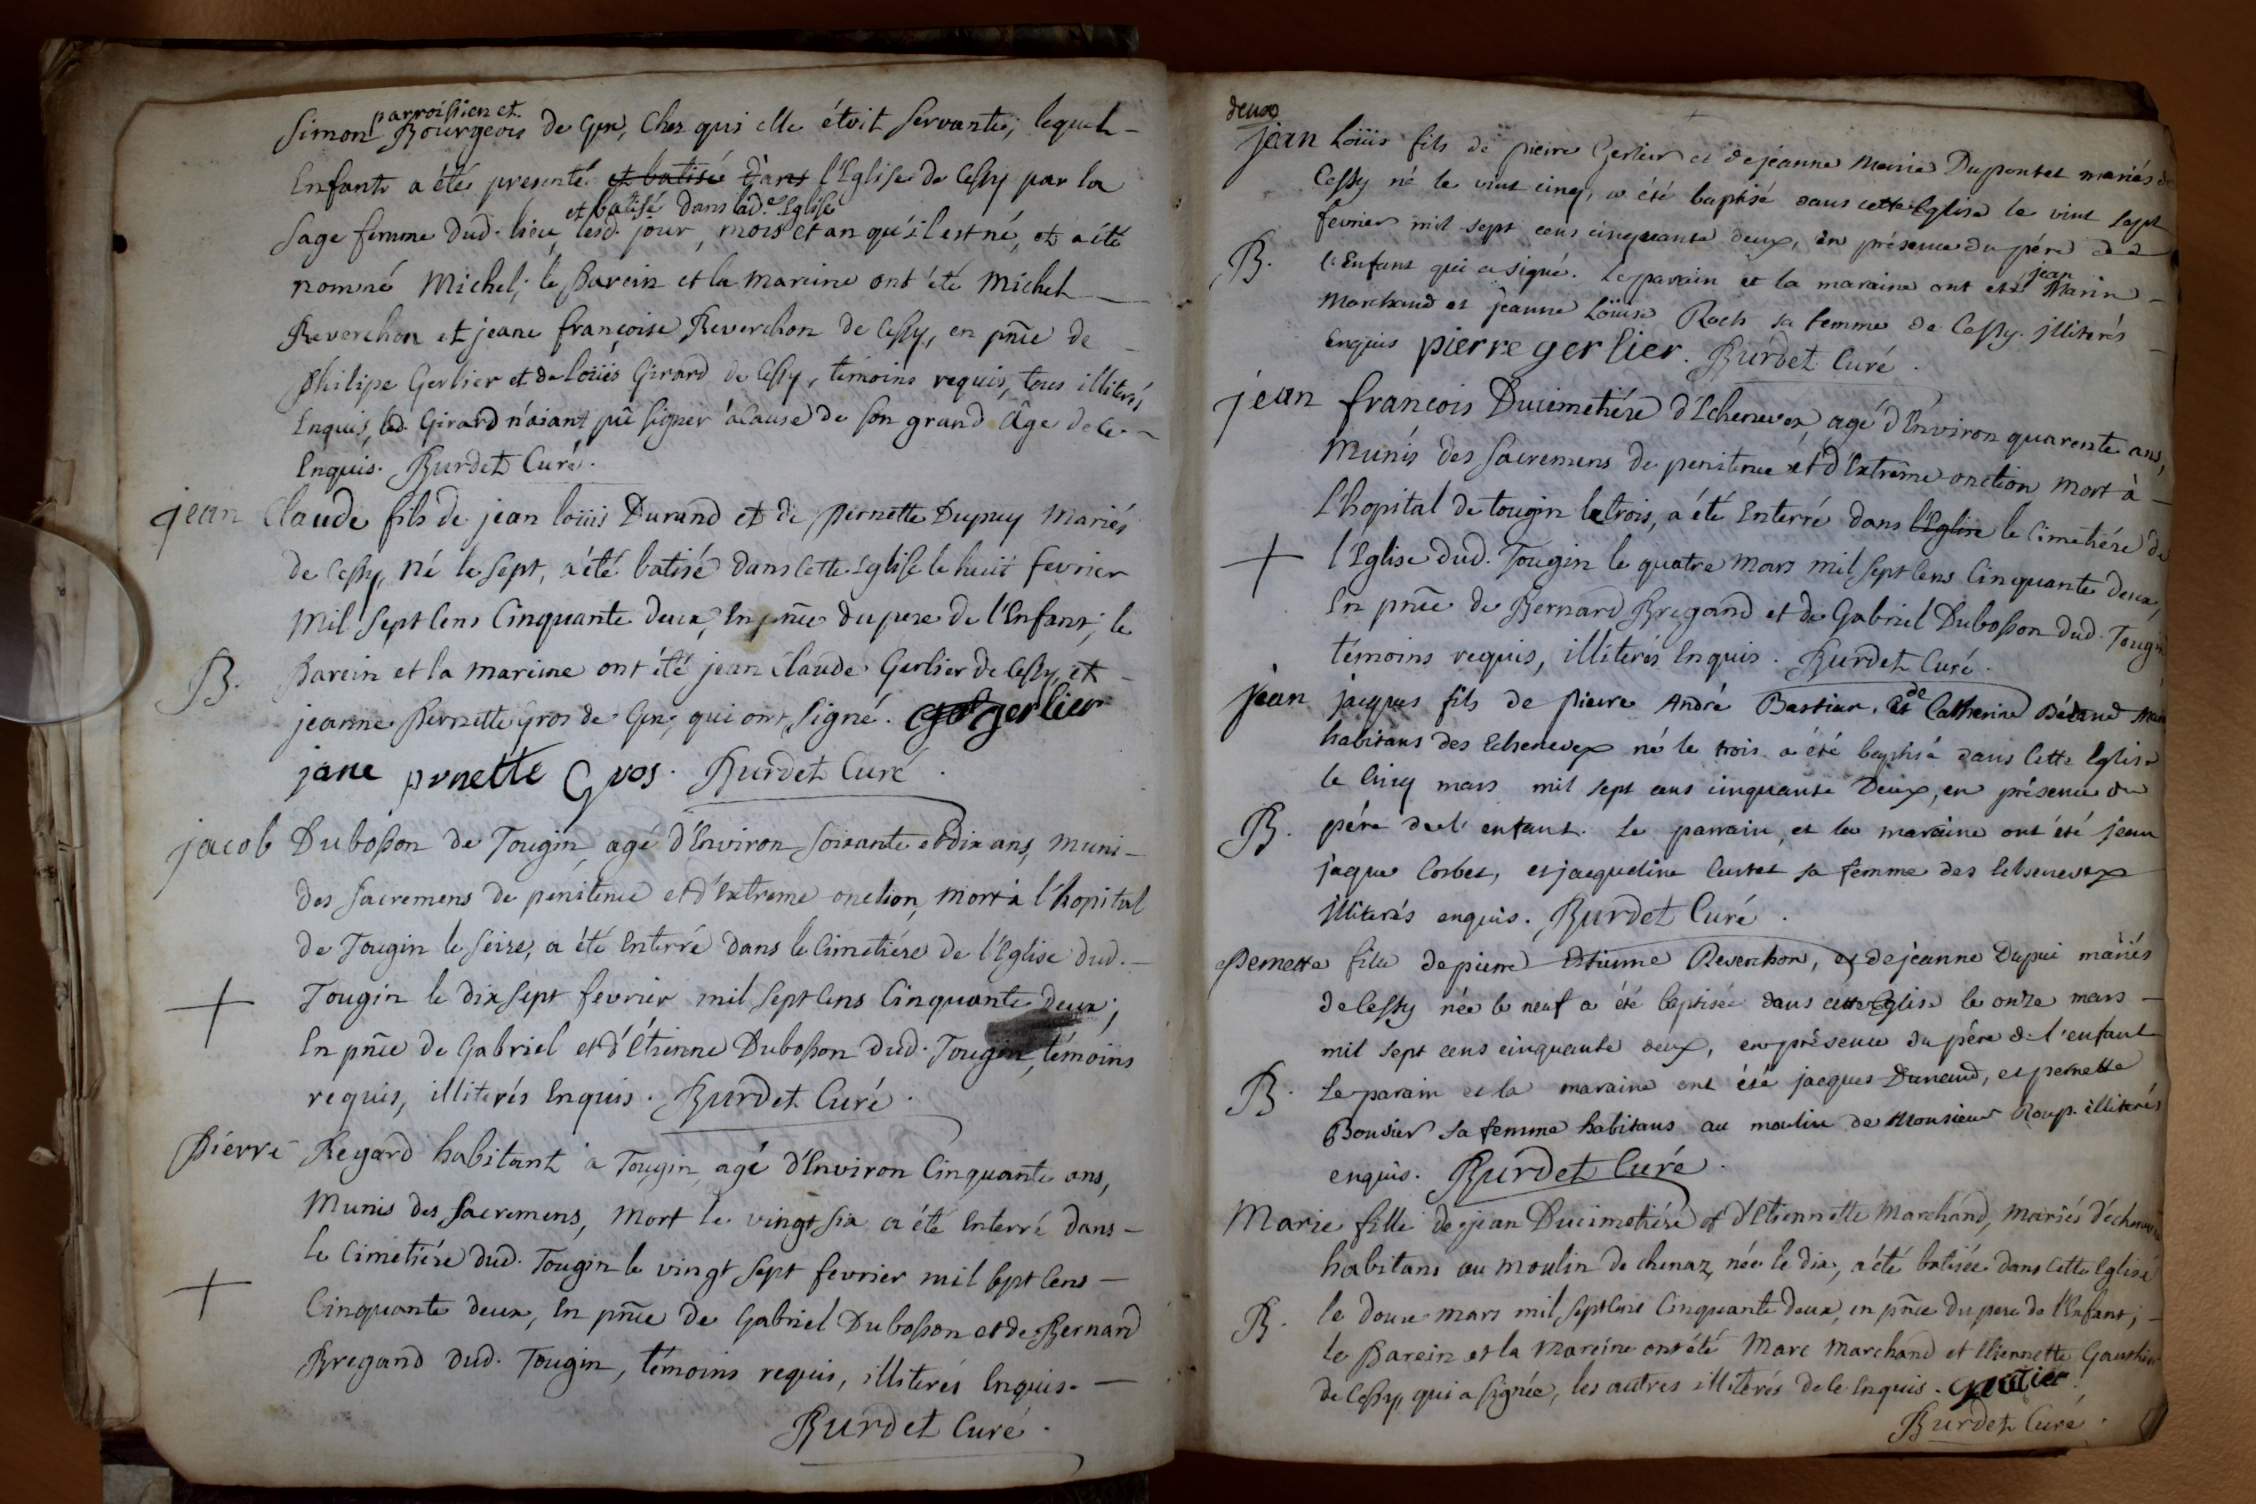 parroissien et
Simon Bourgeois de Gex, chez qui elle étoit servante; lequel
Enfant a été presenté et batisé dans l'Eglise de Cessy par la
et batisé dans lad.e Eglise
Sage femme dud. lieu, lesd. jour, mois et an qu'il est né, et a été
nommé Michel; le Parein et la mareine ont été Michel
Reverchon et jeane françoise Reverchon de Cessy, en pñce de
philipe Gerlier et de loüis Girard de Cessy, témoins requis, tous illiterés
Enquis, led. Girard n'aiant pû signer à cause de son grand âge de ce
Enquis. Burdet Curé.
jean Claude fils de jean loüis Durand et de Pernette Dupuy Mariés
de Cessy, né le sept, a été batisé dans cette Eglise le huit fevrier
Mil Sept Cens Cinquante deux, En pñce du pere de l'Enfant; le
B. Parein et la mareine ont été jean Claude Gerlier de Cessy, et
jeanne Pernette Gros de Gex, qui ont signé. gerlier
jane prnette Gros. Burdet Curé.
jacob Dubosson de Tougin, agé d'Environ soixante et dix ans, muni
des sacremens de penitence et d'Extreme onction, mort à l'hopital
de Tougin le seize, a été Enterré dans le Cimetiére de l'Eglise dud.
Tougin le dix sept fevrier mil sept Cens Cinquante deux;
En pñce de Gabriel et d'Etienne Dubosson dud. Tougin, témoins
requis, illiterés Enquis. Burdet Curé.
Pierre Regard habitant à Tougin, agé d'Environ Cinquante ans,
Munis des Sacremens, Mort le vingt six a été Enterré dans
le Cimetiére dud. Tougin le vingt sept fevrier mil sept Cens
Cinquante deux, En pñce de Gabriel Dubosson et de Bernard
Bregand dud. Tougin, témoins requis, illiterés Enquis.
Burdet Curé.
deux
jean Loüis fils de pierre Gerlier et de jeanne Marie Dupontet mariés de
Cessy né le vint cinq, a été baptisé dans cette Eglise le vint sept
fevrier mil sept cens cinquante deux, en présence du pére de
B. l'Enfant qui a signé. Le parain et la maraine ont eté jean Marin
Marchand et jeanne Loüise Roch sa femme de Cessy. illiterés
Enquis pierre gerlier. Burdet Curé.
jean francois Ducimetiére d'Echenevex, agé d'Environ quarente ans,
Munis des Sacremens de penitence et d'Extrême onction, mort à
l'hopital de tougin le trois, a été Enterré dans l'Eglise le Cimetiére de
l'Eglise dud. Tougin le quatre Mars mil sept Cens Cinquante deux,
En pñce de Bernard Bregand et de Gabriel Dubosson dud. Tougin
témoins requis, illiterés Enquis. Burdet Curé.
jean jacques fils de Pierre André Bastian, et de Catherine
habitans des Echenevex né le trois a été baptisé dans Cette Eglise
le Cinq mars mil sept cens cinquante Deux, en présence du
B. pére de l'enfant. Le parrain, et la maraine ont été jean
jaque Corbet, et jacqueline Curtet sa femme des Echenevex
illiterés enquis. Burdet Curé.
Pernette fille de pierre Estienne Reverchon, et de jeanne Dupui mariés
de Cessy née le neuf a été baptisée dans cette Eglise le onze mars
mil sept cens cinquante deux, en présence du pére de l'enfant
B. Le parain et la maraine ont été jacques Dunand, et pernette
Bouvier sa femme habitans au moulin de Monsieur Roup. illiterés
enquis. Burdet Curé.
Marie fille de jean Ducimetiére et d'Etiennette Marchand, mariés d'échenevex
habitans au moulin de chenaz, née le dix, a été batisée dans Cette Eglise
B. le douze mars mil sept Cens Cinquante deux, en pñce du pere de l'Enfant;
le Parein et la Mareine ont été Marc Marchand et Etiennette Gauthier
de Cessy, qui a signée, les autres illiterés de le Enquis. Gautier
Burdet Curé.